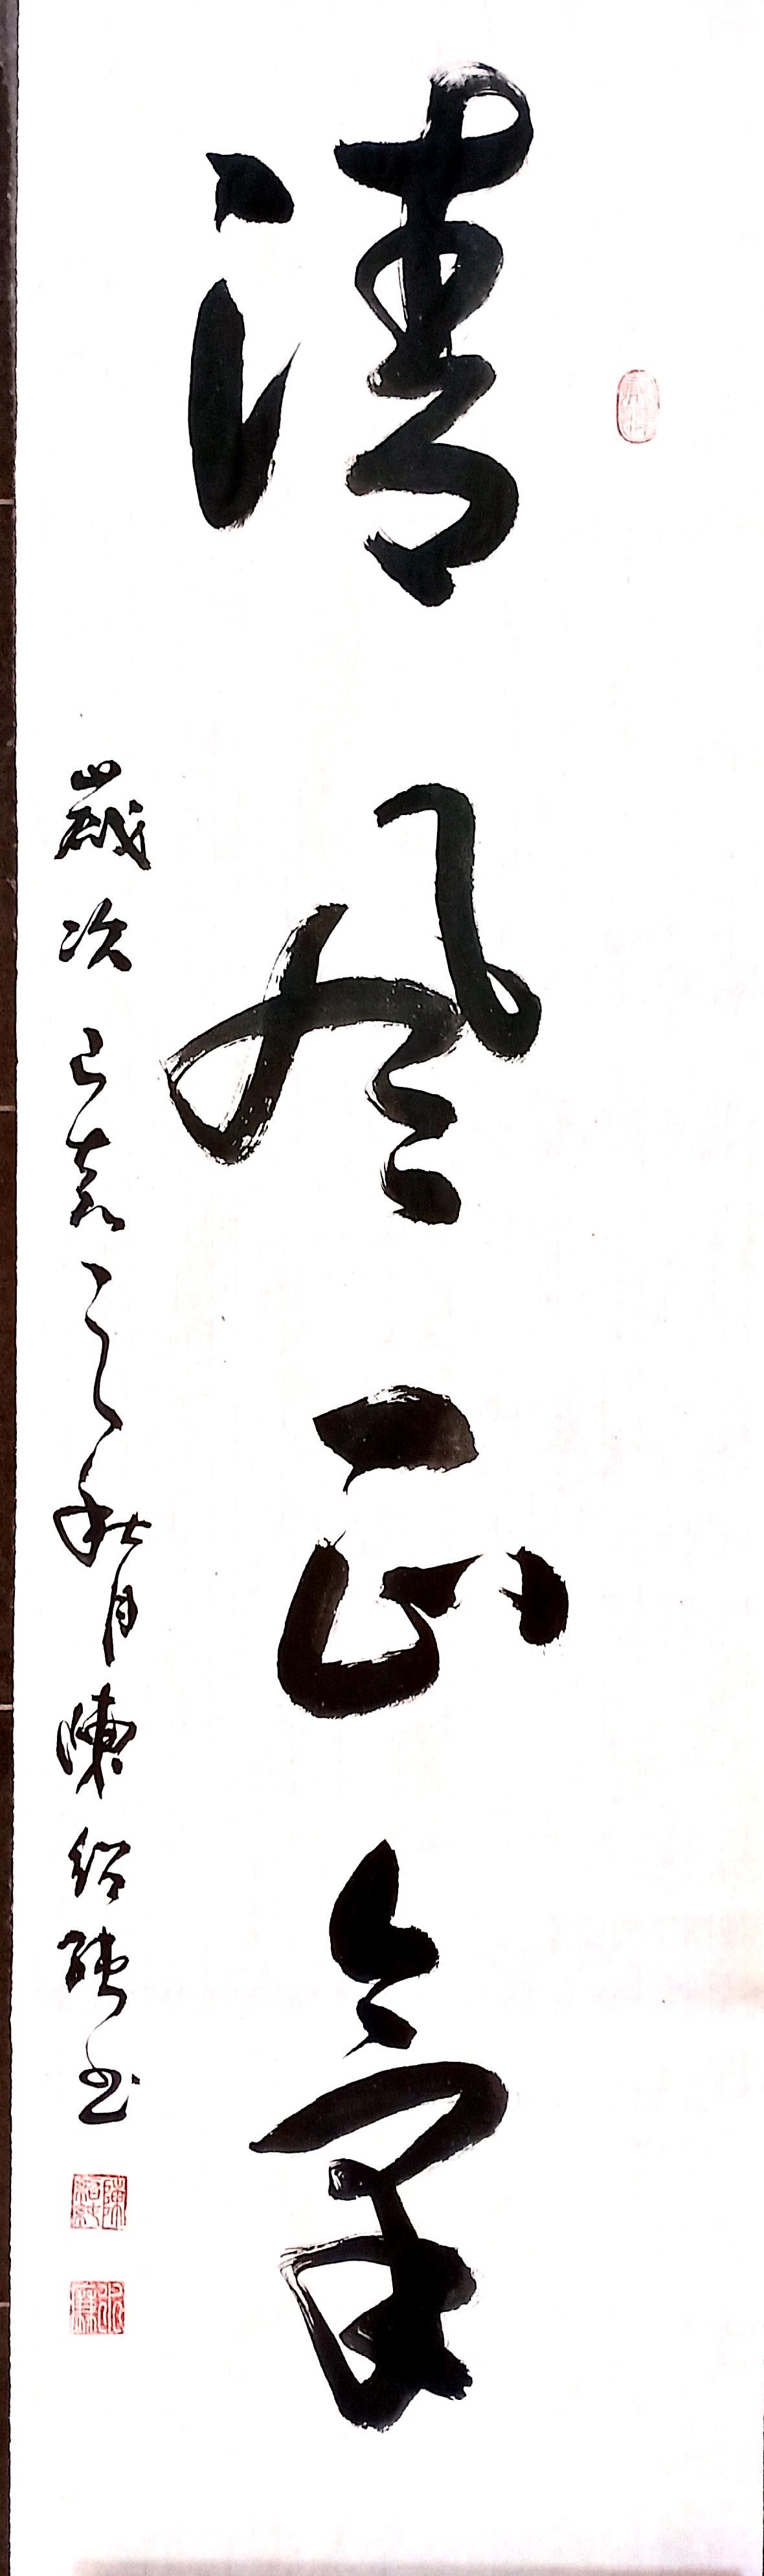 清風正氣
歲次己亥之秋月陳紹雄书